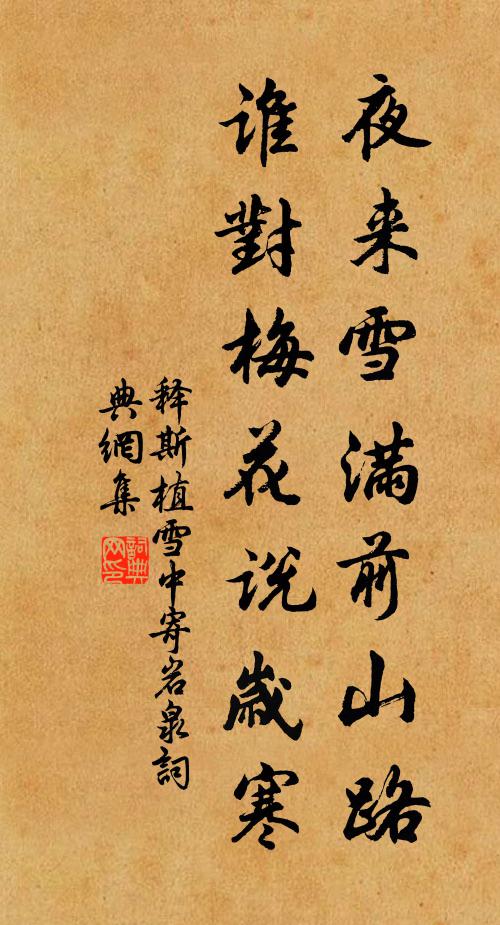 夜来雪満前山路
誰對梅花說嵗寒
释斯植雪中寄岩泉詞
典網集
詞典网印